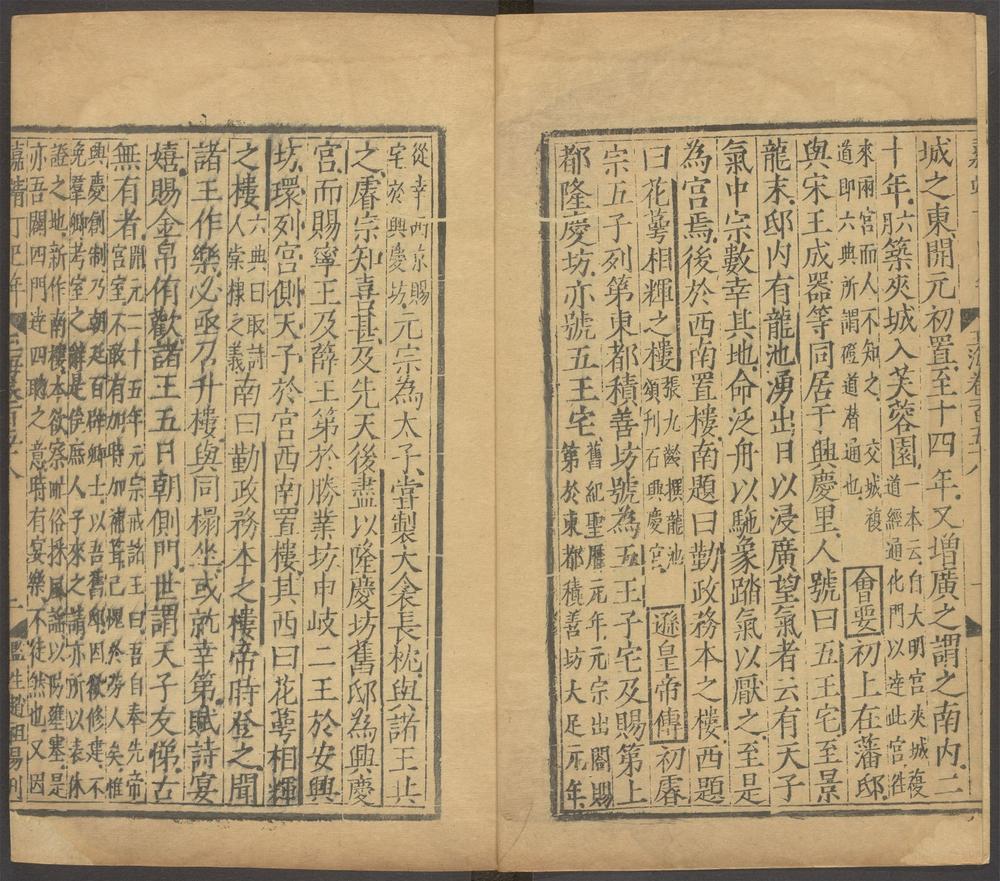 城之東開元初置至十四年又增廣之謂之南内二
十年六月築夾城入芙蓉園一本云自大明宮夾城複
道經通化門以達此宮徃
來兩宮而人不知之交城複
道即六典所謂磴道潛通也會要初上在藩邸
與宋王成器等同居于興慶里人號曰五王宅至景
龍末邸内有龍池湧出日以浸廣望氣者云有天子
氣中宗數幸其地命泛舟以駞象踏氣以厭之至是
為宮焉後於西南置樓南題曰勤政務本之樓西題
曰花萼相輝之樓張九齡撰龍池
頌刋石興慶宮遜皇帝傳初睿
宗五子列第東都積善坊號為五王子宅及賜第上
都隆慶坊亦號五王宅舊紀聖曆元年元宗出閤賜
第於東都積善坊大足元年
從幸西京賜
宅於興慶坊元宗為太子嘗製大衾長枕與諸王共
之睿宗知喜甚及先天後盡以隆慶坊舊邸為興慶
宮而賜寧王及薛王第於勝業坊申岐二王於安興
坊環列宮側天子於宮西南置樓其西曰花萼相輝
之樓六典曰取詩
人棠棣之義南曰勤政務本之樓帝時登之聞
諸王作樂必亟召升樓與同榻坐或就幸第賦詩宴
嬉賜金帛侑歡諸王五日朝側門世謂天子友悌古
無有者開元二十五年元宗戒諸王曰吾自奉先帝
宮室不敢有加時加補葺已愧於勞人矣惟
興慶創制乃朝廷百辟卿士以吾舊邸因欲修建不
免羣卿考室之辭是俟庶人子來之請亦所以表休
證之地新作南樓本欲察甿俗採風謠以防壅塞是
亦吾闢四門達四聰之意時有宴樂不徒然也又因
嘉靖丁巳年
監生趙祖陽刋